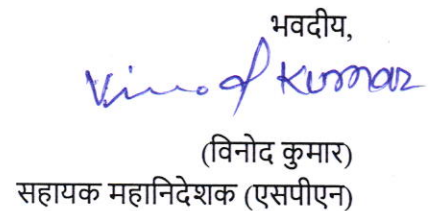 भवदीय,
Vinod Kumar
(विनोद कुमार)
सहायक महानिदेशक (एसपीएन)